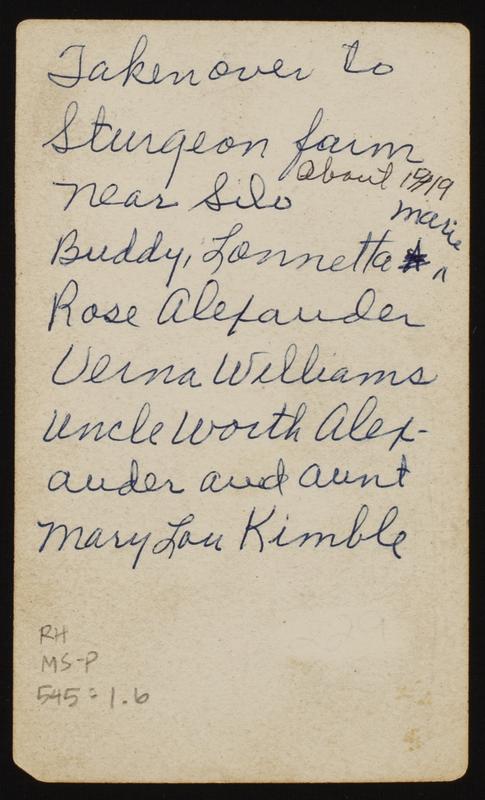 Taken over to
Sturgeon farm
about 1919
near Silo
Marie
Buddy, Lonnetta ^
Rose Alexander
Verna Williams
Uncle Worth Alex-
ander and aunt
Mary Lou Kimble
RH
MS-P
545:1.6